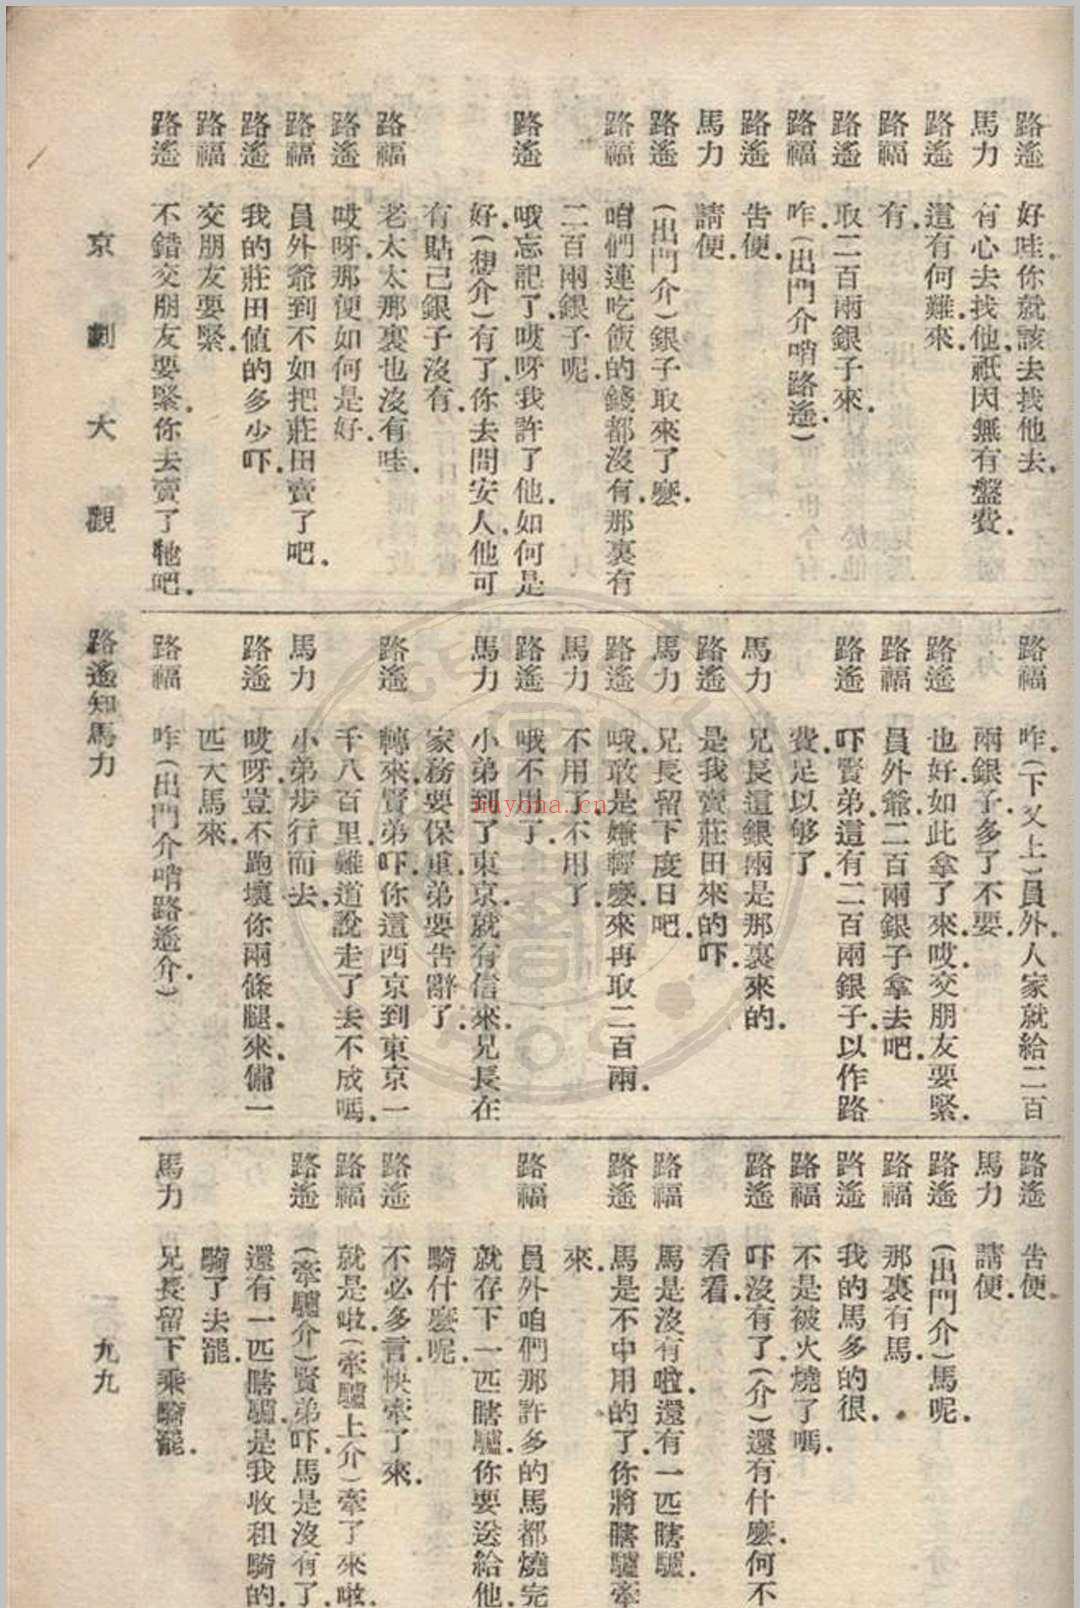 路遙　好哇．你就該去找他去．
馬力　有心去找他．祇因無有盤費．
路遙　這有何難來．
路福　有．
路遙　取二百兩銀子來．
路福　咋．（出門介哨路遙）
路遙　告便．
馬力　請便．
路遙　（出門介）銀子取來了麼．
路福　咱們連吃飯的錢都沒有．那裏有
二百兩銀子呢．
路遙　哦忘記了．哎呀我許了他．如何是
好（想介）有了．你去問安人．他可
有貼己銀子沒有．
路福　老太太那裏也沒有哇．
路遙　哎呀．那便如何是好．
路福　員外爺到不如把莊田賣了吧．
路遙　我的莊田值的多少吓．
路福　交朋友要緊．
路遙　不錯交朋友要緊．你去賣了牠吧．
路福　咋．（下又上）員外．人家就給二百
兩銀子．多了不要．
路遙　也好．如此拿了來．哎交朋友要緊．
路福　員外爺．二百兩銀子拿去吧．
路遙　吓賢弟．這有二百兩銀子．以作路
費．足以够了．
馬力　兄長這銀兩是那裏來的．
路遙　是我賣莊田來的吓．
馬力　兄長留下度日吧．
路遙　哦．敢是嫌輕麼．來再取二百兩．
馬力　不用了．不用了．
路遙　哦不用了．
馬力　小弟到了東京．就有信來．兄長在
家務要保重．弟要告辭了．
路遙　轉來．賢弟吓．你這西京到東京一
千八百里．難道說走了去不成嗎．
馬力　小弟步行而去．
路遙　哎呀．豈不跑壞你兩條腿．來．備一
匹大馬來．
路福　咋（出門介哨路遙介）
路遙　告便．
馬力　請便．
路遙　（出門介）馬呢．
路福　那裏有馬．
路遙　我的馬多的很．
路福　不是被火燒了嗎．
路遙　吓沒有了．（介）還有什麼．何不
看看．
路福　馬是沒有啦．還有一匹瞎驢．
路遙　馬是不中用的了．你將瞎驢牽
來．
路福　員外咱們那許多的馬都燒完
就存下一匹瞎驢．你要送給他．
騎什麼呢．
路遙　不必多言．快牽了來．
路福　就是啦．（牽驢上介）牽了來啦．
路遙　（牽驢介）賢弟吓．馬是沒有了．
還有一匹瞎驢．是我收租騎的．
騎了去罷．
馬力　兄長留下乘騎罷．
京劇大觀　路遙知馬力　一九九
huyona.cn